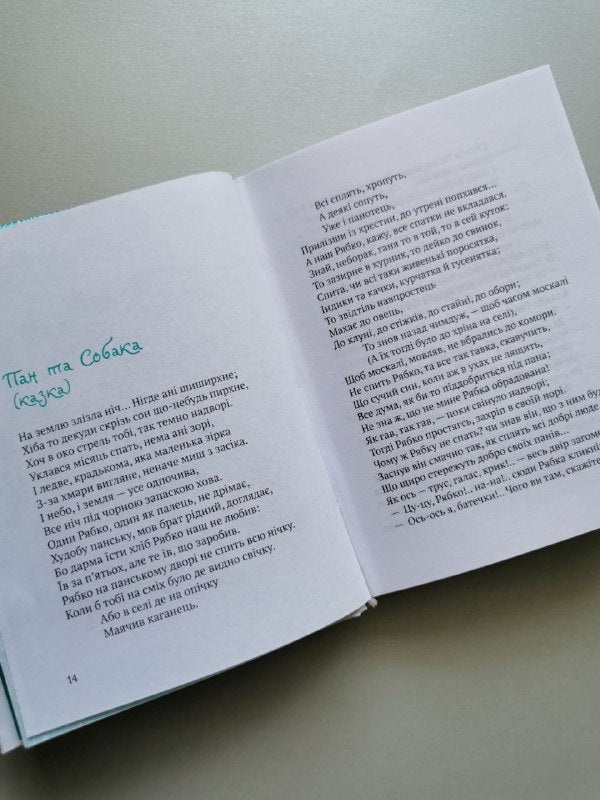 Пан та Собака
(казка)
На землю злізла ніч... Нігде ані шиширхне;
Хіба то декуди скрізь сон що-небудь пирхне,
Хоч в око стрель тобі, так темно надворі.
Уклався місяць спать, нема ані зорі,
І ледве, крадькома, яка маленька зірка
З-за хмари вигляне, неначе миш з засіка.
І небо, і земля — усе одпочива,
Все ніч під чорною запаскою хова.
Один Рябко, один як палець, не дрімає,
Худобу панську, мов брат рідний, доглядає,
Бо дарма їсти хліб Рябко наш не любив:
Їв за п'ятьох, але те їв, що заробив.
Рябко на панському дворі не спить всю нічку.
Коли б тобі на сміх було де видно свічку.
Або в селі де на опічку
Маячив каганець.
14
Всі сплять, хропуть,
А деякі сопуть,
Уже і панотець,
Прилізши із хрестин, до утрені попхався...
А наш Рябко, кажу, все спатки не вкладався.
Знай, неборак, ганя то в той, то в сей куток;
То зазирне в курник, то дейко до свинок,
Спита, чи всі таки живенькі поросятка,
Індики та качки, курчатка й гусенятка;
То звідтіль навпростець
Махає до овець,
До клуні, до стіжків, до стайні, до обори;
То знов назад чимдуж, — щоб часом москалі
(А їх тогді було до хріна на селі),
Щоб москалі, мовляв, не вбрались до комори.
Не спить Рябко, та все так гавка, скавучить,
Що сучий син, коли аж в ухах не лящить,
Все дума, як би то піддобриться під пана;
Не зна ж, що не мине Рябка обрадована!
Як гав, так гав, — поки свінуло надворі;
Тогді Рябко простягсь, захріп в своїй норі.
Чому ж Рябку не спать? чи знав він, що з ним буде?
Заснув він смачно так, як сплять всі добрі люде,
Що щиро стережуть добро своїх панів...
Як ось — трус, галас, крик!.. — весь двір загомо
— Цу-цу, Рябко!.. на-на!.. сюди Рябка кликні
— Ось-ось я, батечки!.. Чого ви там, скажіте